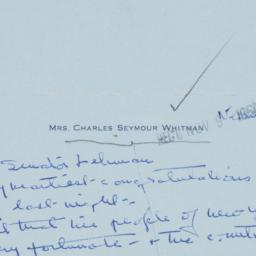 MRS. CHARLES SEYMOUR WHITMAN
REC'D NOV
Senator Lehman
congratulations
last night -
that the people of new
fortunate - & the